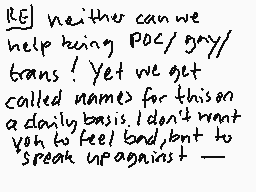 RE neither can we
help being POC/gay/
trans! Yet we get
called names for this on
a daily basis. I don't want
you to feel bad, but to
speak up against —